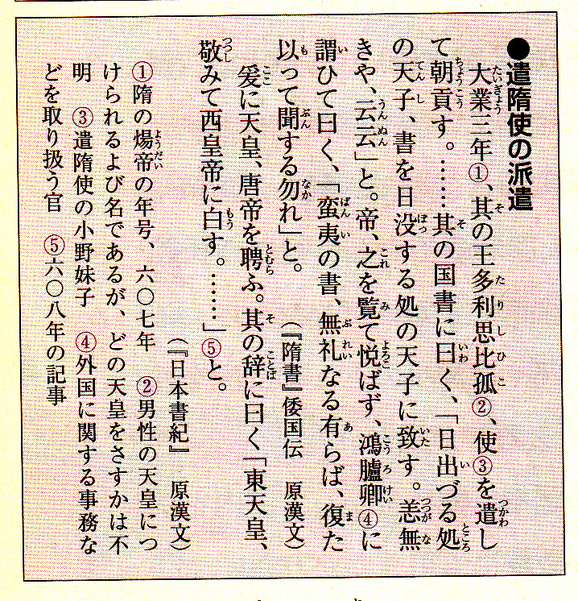 ●遣隋使の派遣
大業三年①、其の王多利思比孤②、使③を遣し
て朝貢す。……其の国書に曰く、「日出づる処
の天子、書を日没する処の天子に致す。恙無
きや、云云」と。帝、之を覧て悦ばず、鴻臚卿④に
謂ひて曰く、「蛮夷の書、無礼なる有らば、復た
以って聞する勿れ」と。（『隋書』倭国伝　原漢文）
爰に天皇、唐帝を聘ふ。其の辞に曰く「東天皇、
敬みて西皇帝に白す。……」⑤と。
（『日本書紀』　原漢文）
①隋の煬帝の年号、六〇七年　②男性の天皇につ
けられるよび名であるが、どの天皇をさすかは不
明　③遣隋使の小野妹子　④外国に関する事務な
どを取り扱う官　⑤六〇八年の記事